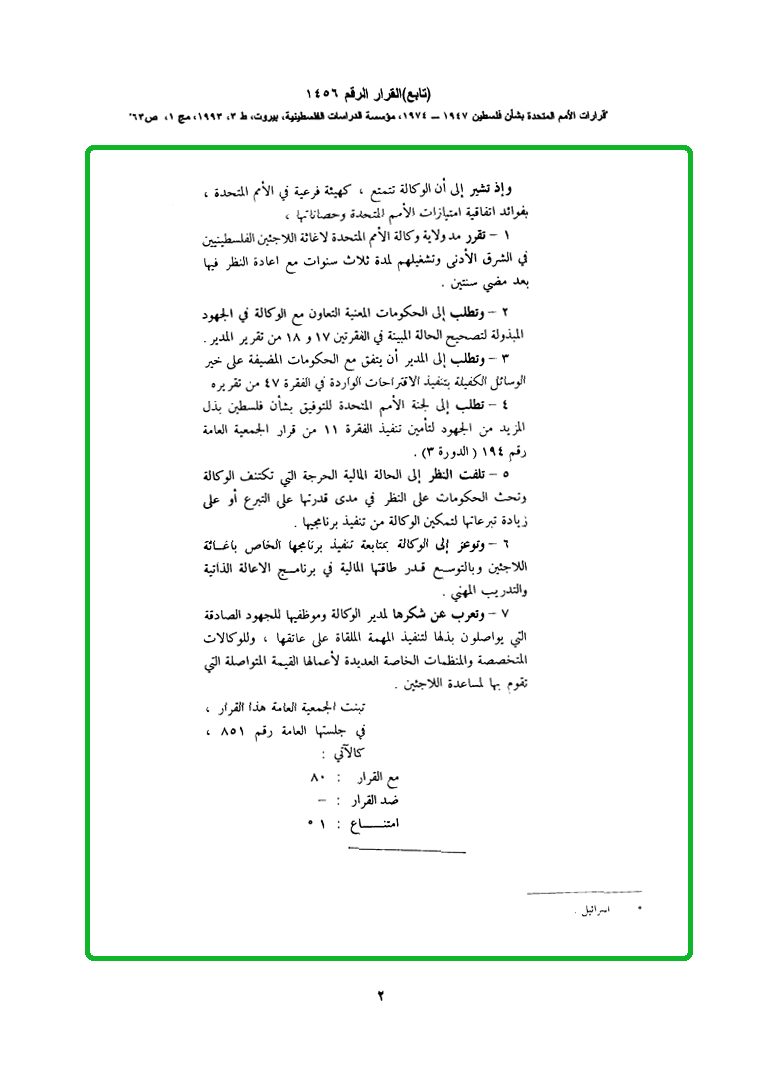 (تابع)القرار الرقم ١٤٥٦
"قرارات الأمم المتحدة بشأن فلسطين ١٩٤٧ – ١٩٧٤، مؤسسة الدراسات الفلسطينية، بيروت، ط ٣، ١٩٩٣، مج ١، ص٦٣"
وإذ تشير إلى أن الوكالة تتمتع ، كهيئة فرعية في الأمم المتحدة ،
بفوائد اتفاقية امتيازات الأمم المتحدة وحصاناتها ،
١ – تقرر مد ولاية وكالة الأمم المتحدة لاغاثة اللاجئين الفلسطينيين
في الشرق الأدنى وتشغيلهم لمدة ثلاث سنوات مع اعادة النظر فيها
بعد مضي سنتين .
٢ – وتطلب إلى الحكومات المعنية التعاون مع الوكالة في الجهود
المبذولة لتصحيح الحالة المبينة في الفقرتين ١٧ و ١٨ من تقرير المدير .
٣ – وتطلب إلى المدير أن يتفق مع الحكومات المضيفة على خير
الوسائل الكفيلة بتنفيذ الاقتراحات الواردة في الفقرة ٤٧ من تقريره
٤ – تطلب إلى لجنة الأمم المتحدة للتوفيق بشأن فلسطين بذل
المزيد من الجهود لتأمين تنفيذ الفقرة ١١ من قرار الجمعية العامة
رقم ١٩٤ ( الدورة ٣) .
٥ – تلفت النظر إلى الحالة المالية الحرجة التي تكتنف الوكالة
وتحث الحكومات على النظر في مدى قدرتها على التبرع أو على
زيادة تبرعاتها لتمكين الوكالة من تنفيذ برنامجيها .
٦ – وتوعز إلى الوكالة بمتابعة تنفيذ برنامجها الخاص باغــاثة
اللاجئين وبالتوسع قدر طاقتها المالية في برنامج الاعالة الذاتية
والتدريب المهني .
٧ – وتعرب عن شكرها لمدير الوكالة وموظفيها للجهود الصادقة
التي يواصلون بذلها لتنفيذ المهمة الملقاة على عاتقها ، وللوكالات
المتخصصة والمنظمات الخاصة العديدة لأعمالها القيمة المتواصلة التي
تقوم بها لمساعدة اللاجئين .
تبنت الجمعية العامة هذا القرار ،
في جلستها العامة رقم ٨٥١ ،
كالآتي :
مع القرار : ٨٠
ضد القرار : –
امتنــاع : ١ *
* اسرائيل .
٢